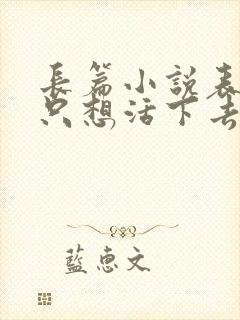 長篇小說表
只想活下去
藍惠文